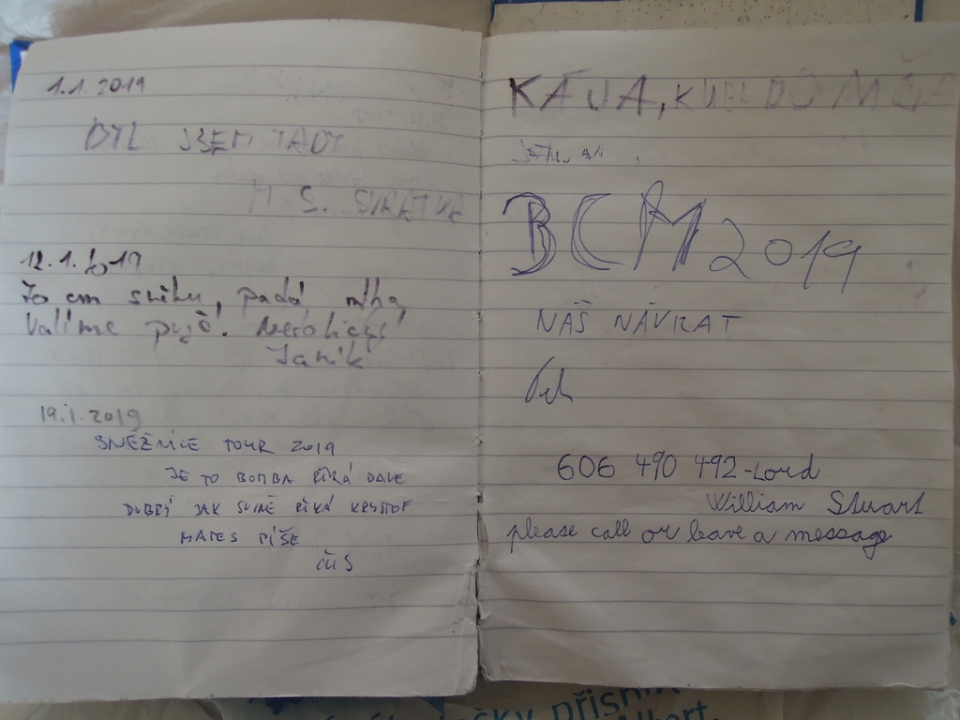 1.1.2019
BYL JSEM TADY
M. S. SVRATKA
12.1.2019
70 cm sněhu, padá mlha,
Valíme pryč!
Janík
19.1.2019
SNĚŽNICE TOUR 2019
JE TO BOMBA ŘÍKÁ DAVE
DOBRÝ JAK SVINĚ ŘÍKÁ KRYSTOF
MATES PÍŠE
ČUS
KÁJA, KUBA DO MŠA
BCM 2019
NÁŠ NÁVRAT
606 490 492-Lord
William Stuart
please call or leave a message